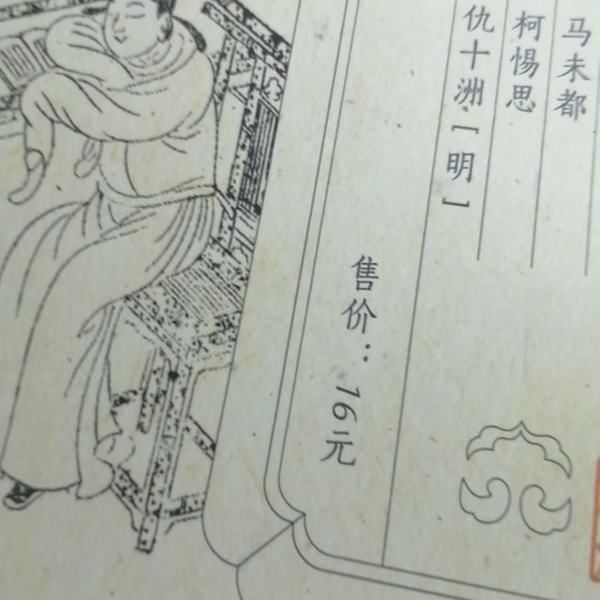 马未都
柯惕思
仇十洲[明]
售价：16元